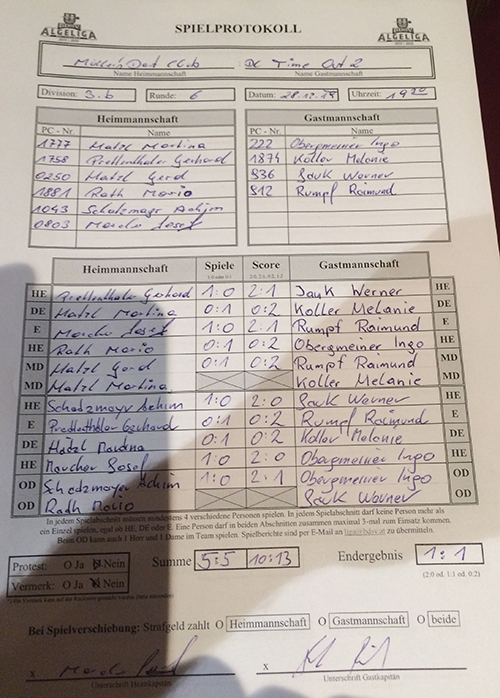 ALGELIGA SPIELPROTOKOLL ALGELIGA
Dart Club : DC Time Out 2
Name Heimmannschaft Name Gastmannschaft
Division: 3.b Runde: 6 Datum: 28.12. Uhrzeit: 19
Heimmannschaft Gastmannschaft
PC - Nr. Name PC - Nr. Name
1777 Matzl Martina 222 Obergmeiner Ingo
1758 Prettenthaler Gerhard 1874 Koller Melanie
0250 Matzl Gerd 836 Jauk Werner
1881 Rath Mario 812 Rumpf Raimund
1043 Schatzmayr Achim
0803 Josef
Heimmannschaft Spiele Score Gastmannschaft
HE Prettenthaler Gerhard 1:0 2:1 Jauk Werner HE
DE Matzl Martina 0:1 0:2 Koller Melanie DE
E Josef 1:0 2:1 Rumpf Raimund E
HE Rath Mario 0:1 0:2 Obergmeiner Ingo HE
MD Matzl Gerd 0:1 0:2 Rumpf Raimund MD
MD Matzl Martina Koller Melanie MD
HE Schatzmayr Achim 1:0 2:0 Jauk Werner HE
E Prettenthaler Gerhard 0:1 0:2 Rumpf Raimund E
DE Matzl Martina 0:1 0:2 Koller Melanie DE
HE Josef 1:0 2:0 Obergmeiner Ingo HE
OD Schatzmayr Achim 1:0 2:1 Obergmeiner Ingo OD
OD Rath Mario Jauk Werner OD
In jedem Spielabschnitt müssen mindestens 4 verschiedene Personen spielen. In jedem Spielabschnitt darf keine Person mehr als
ein Einzel spielen, egal ob HE, DE oder E. Eine Person darf in beiden Abschnitten zusammen maximal 3-mal zum Einsatz kommen.
Beim OD kann auch 1 Herr und 1 Dame im Team spielen. Spielberichte sind per E-Mail an zu übermitteln.
Protest: O Ja O Nein Summe 5:5 10:13 Endergebnis 1:1
Vermerk: O Ja O Nein (2:0 od. 1:1 od. 0:2)
Bei Spielverschiebung: Strafgeld zahlt O Heimmannschaft O Gastmannschaft O beide
x x
Unterschrift Heimkapitän Unterschrift Gastkapitän